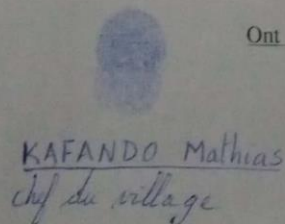 Ont
KAFANDO Mathias
chef du village